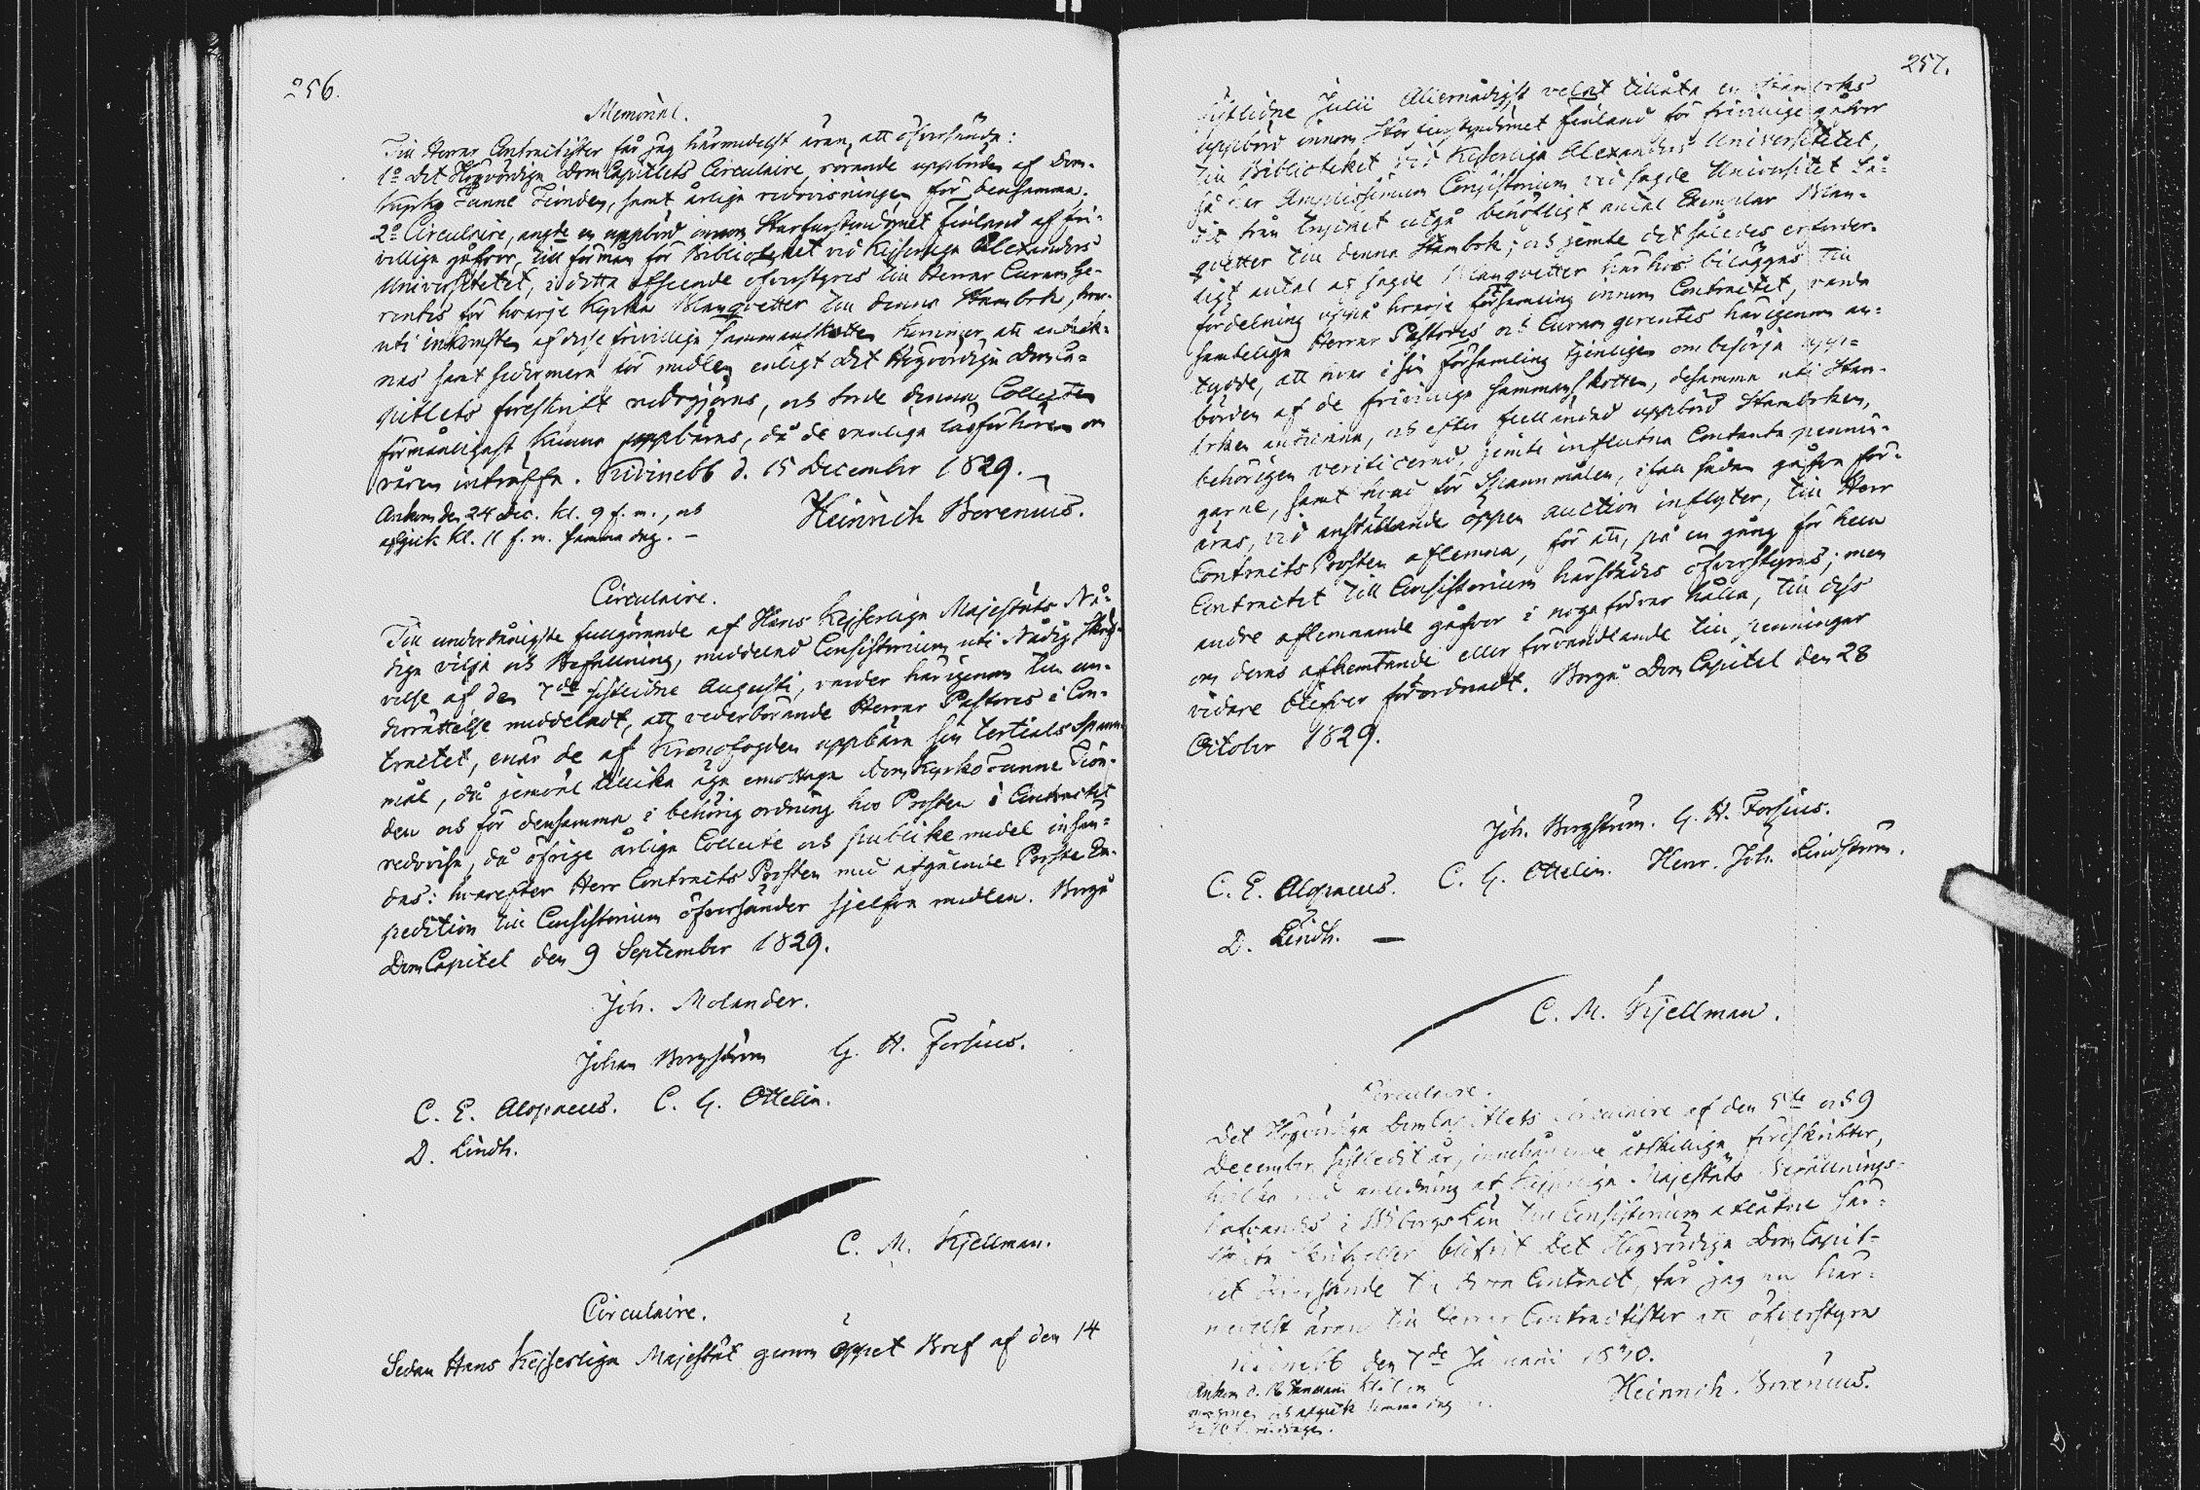 256.
Memorial.
Till Herrar Contractister får jag härmedelst äran, att öfversända:
1o Det Högvördiga DomCapitlets Circulaire, rörande uppbörden af Dom-
kyrko Tunne Tionden, samt årliga redovisningen för densamma.
2o Circulaire, angde en uppbörd innom Storfurstendömet Finland af fri-
villiga gåfvor, till förmån för Bibliotheket vid Kejserliga Alexanders
Universitetet, i detta afseende öfverstyres till Herrar Curam Ge-
rentes för hvarje Kyrka Blanqvetter till denna Stambok, hvar-
uti inkomsten af desse frivilliga sammanskotten kommer att anteck-
nas samt sedermera för medlen enligt Det Högvördiga DomCa-
pitlets föreskrift redogjöras, och torde denna Collecten
förmånligast kunna uppbäras, då de vanliga läsförhören om
våren inträffa. Kivinebb d. 15 December 1829.
Ankom den 24 Dec. kl. 9 f. m., och
afgick kl. 11 f. m. samma dag. —
Heinrich Borenius.
Circulaire.
Till underdånigste fullgörande af Hans Kejserliga Majestäts Nå-
diga vilja och Befallning, meddelad Consistorium uti Nådig skrif-
velse af den 7de sistlidne Augusti, varder härigenom till un-
derrättelse meddeladt, att vederbörande Herrar Pastores i Con-
tractet, enär de af Kronofogden uppbära sin Tertials Spann-
mål, då jemväl tillika äga emottaga DomkyrkoTunne Tion-
den och för densamma i behörig ordning hos Prosten i Contractet
redovisa, då öfrige årliga Collecte och publike medel insän-
das; hvarefter Herr Contracts Prosten med afgående Posten Ex-
pedition till Consistorium öfversänder sjelfva medlen. Borgå
DomCapitel den 9 September 1829.
Joh. Molander.
Johan Borgström G. H. Forsius.
C. E. Alopaeus. C. G. Ottelin.
D. Lindh.
C. M. Kjellman.
Circulaire.
Sedan Hans Kejserliga Majestät genom öppet Bref af den 14
257.
sistlidne Julii Allernådigst velat tillåta en Stamboks
uppbörd innom Storfurstendömet Finland för frivillige gåfvor
till Bibliotheket vid Kejserliga Alexanders Universitetet,
så har Amplissimum Consistorium vid sagde Universitet lå-
tit från trycket utgå behöfligt antal Exemplar Blan-
qvetter till denna Stambok; och jemte det således erforder-
ligt antal af sagde Blanqvetter härhos biläggas till
fördelning uppå hvarje församling innom Contractet, varda
samtelige Herrar Pastores och Curam gerentes härigenom an-
tydde, att hvar i sin församling tjenligen ombesörja upp-
börden af de frivillige sammanskotten, desamma uti Stam-
boken anteckna, och efter fulländad uppbörd Stamboken,
behörigen verificerad, jemte influtna Contanta pennin-
garne, samt hvad för Spannmålen, i fall sådan gåfva för-
äras, vid anställande öppen auction inflyter, till Herr
Contracts Prosten aflemna, för att, på en gång för hela
Contractet till Consistorium härstädes öfverstyras; men
andre aflemnande gåfvor i noga förvar hålla, till dess
om deras afhemtande eller förvandlande till penningar
vidare blifver förordnadt. Borgå DomCapitel den 28
October 1829.
Joh. Borgström. G. H. Forsius.
C. E. Alopaeus. C. G. Ottelin. Henr. Joh. Lindström.
D. Lindh. —
C. M. Kjellman.
Circulaire.
Det Högvördiga DomCapitlets Circulaire af den 5te och 9
December sistledit år, innebärande åtskilliga föreskrifter,
hvilka med anledning af Kejserliga Majestäts Befallnings-
hafvandes i Wiborgs Län till Consistorium aflåtne sär-
skilta skrifvelser blifvit Det Högvördiga DomCapit-
let öfversände till detta Contract, får jag nu här-
medelst äran till Herrar Contractister att öfverstyra
Kivinebb den 7de Januarii 1830.
Heinrich Borenius.
Ankom d. Januarii kl.
och afgick samma dag